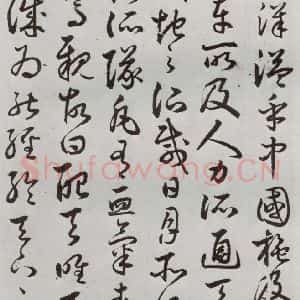 洋溢乎中國施及
車所及人力所通天
地之所載日月所
所隊凡有血氣者
親故曰配天唯天
誠為能經綸天下
Shufawang.CN